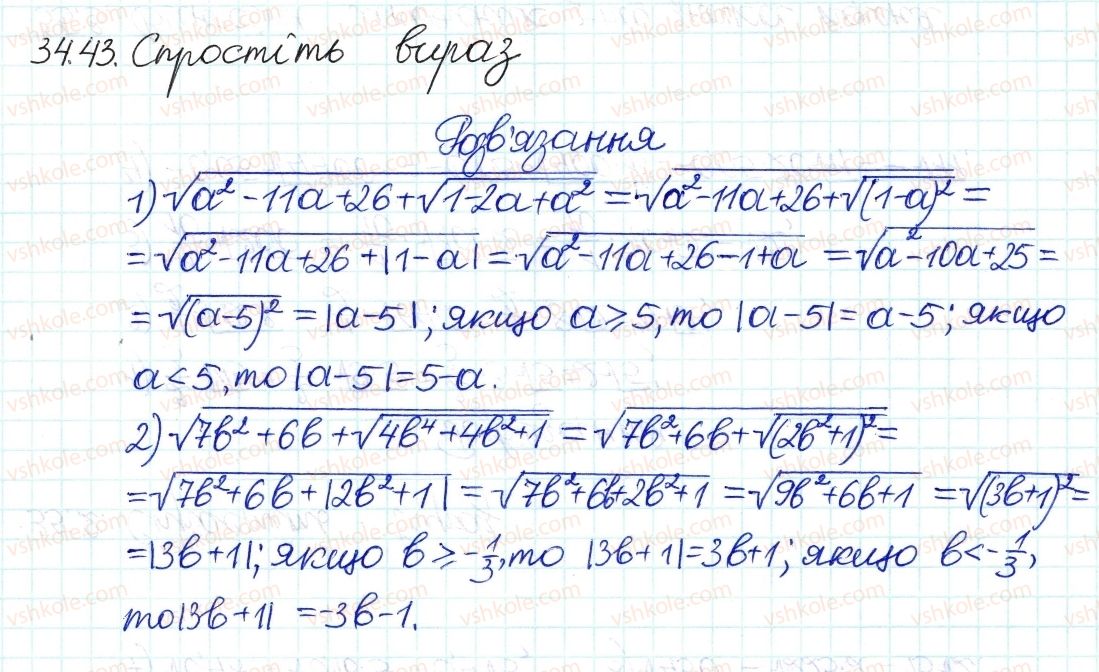 34.43. Спростіть вираз
Розв'язання
1) √(a² - 11a + 26 + √(1 - 2a + a²)) = √(a² - 11a + 26 + √((1 - a)²)) =
= √(a² - 11a + 26 + |1 - a|) = √(a² - 11a + 26 - 1 + a) = √(a² - 10a + 25) =
= √((a - 5)²) = |a - 5|; якщо a ⩾ 5, то |a - 5| = a - 5; якщо
a < 5, то |a - 5| = 5 - a.
2) √(7b² + 6b + √(4b⁴ + 4b² + 1)) = √(7b² + 6b + √((2b² + 1)²)) =
= √(7b² + 6b + |2b² + 1|) = √(7b² + 6b + 2b² + 1) = √(9b² + 6b + 1) = √((3b + 1)²) =
= |3b + 1|; якщо b ⩾ -1/3, то |3b + 1| = 3b + 1; якщо b < -1/3,
то |3b + 1| = -3b - 1.